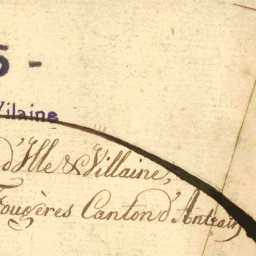 5 -
Vilaine
d'Ille & Villaine,
Fougères Canton d'Antrain